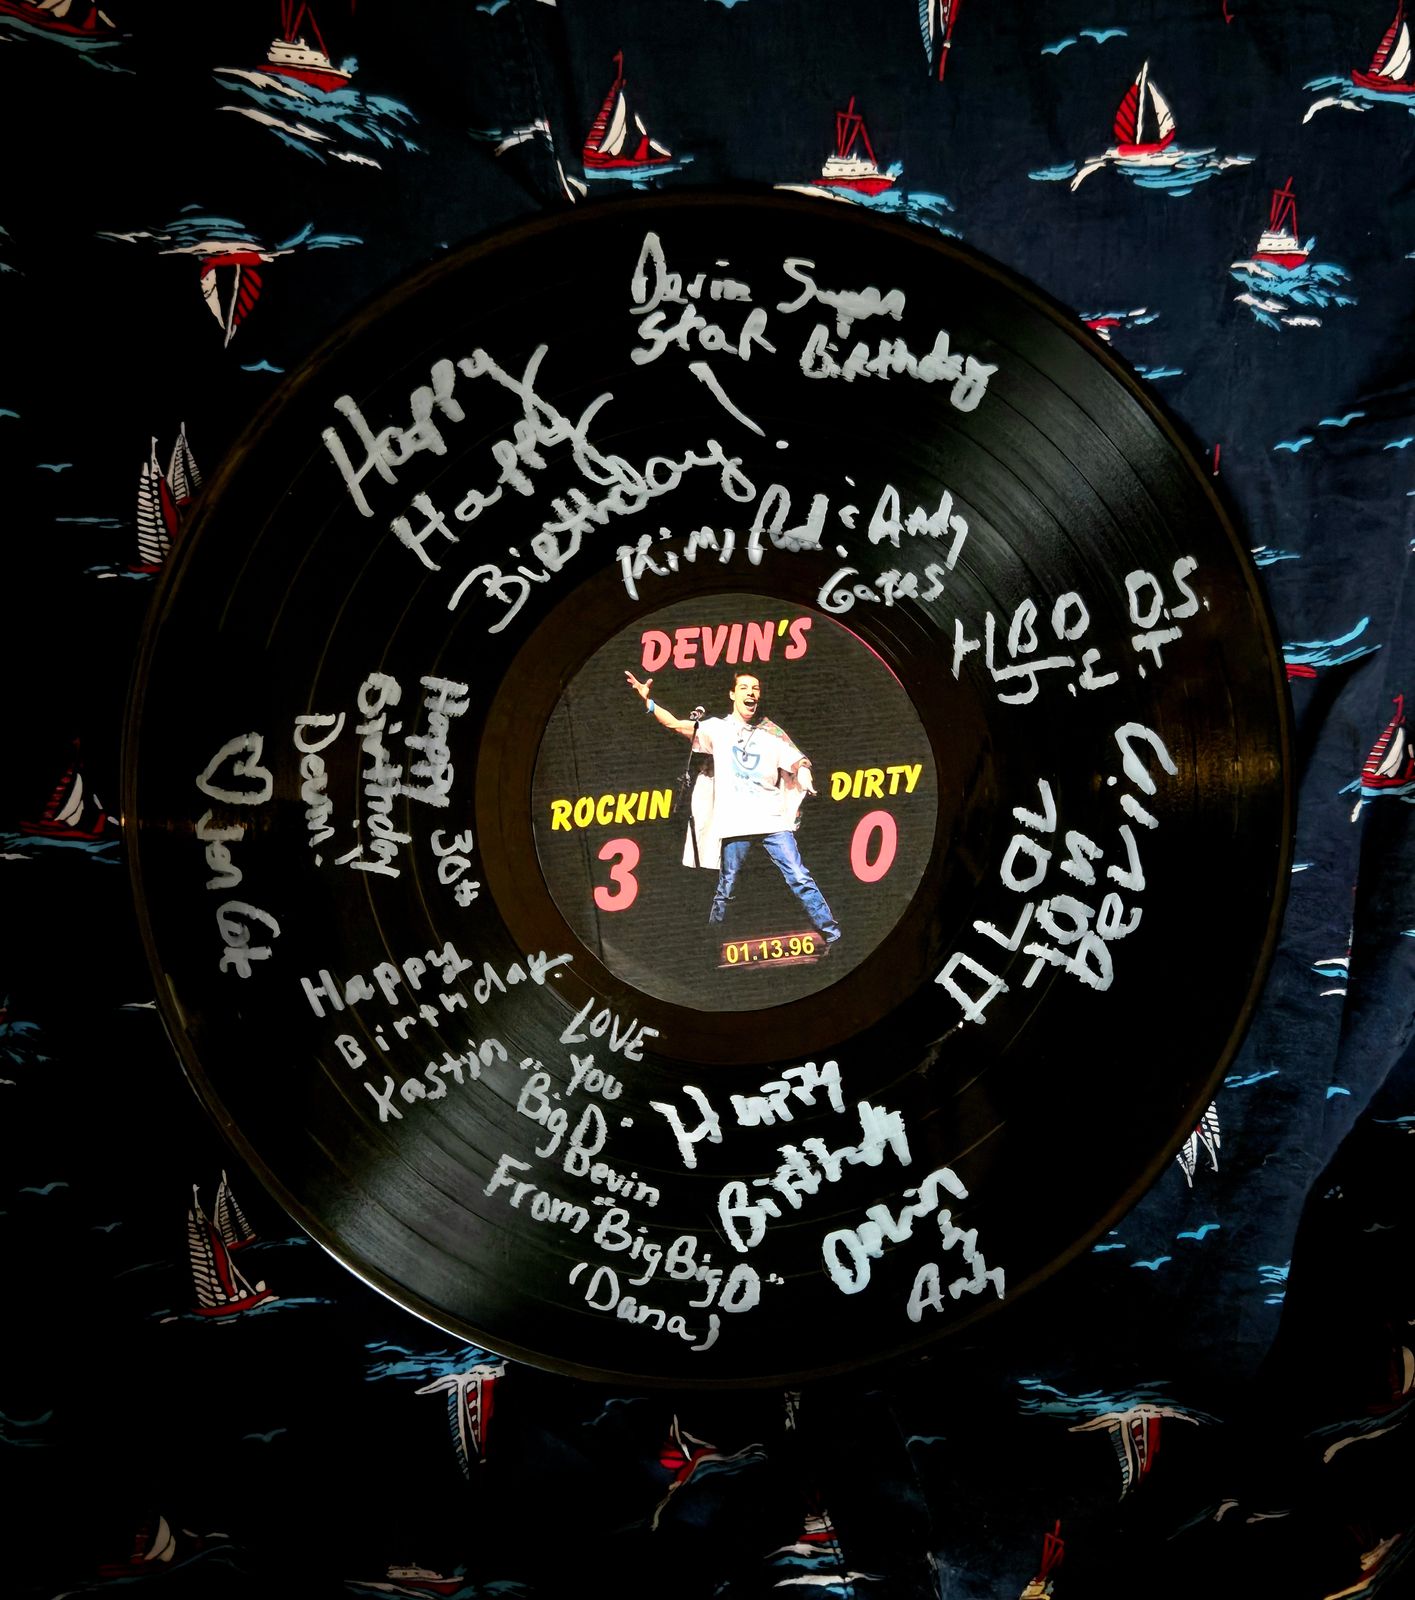 Devin Super
Star Birthday
!
Happy
Happy
Birthday
Kim, Rod & Andy
Gates
HBD
D.S.
DEVIN'S
ROCKIN
3
DIRTY
0
01.13.96
Happy 30th
Birthday
Devin
Happy
Birthday
LOVE
YOU
"Big D"
Devin
From "Big Big D"
(Dana)
Happy
Birthday
Devin
Andy